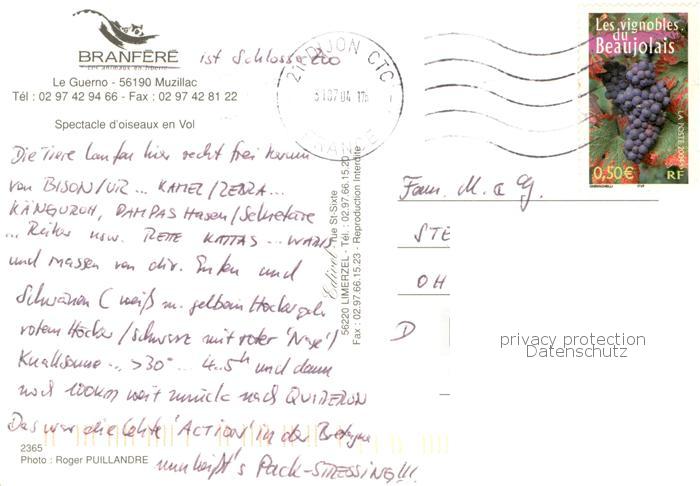 BRANFÉRÉ
Les animaux en liberté
ist Schlosszoo
Le Guerno - 56190 Muzillac
Tél : 02 97 42 94 66 - Fax : 02 97 42 81 22
Spectacle d'oiseaux en Vol
Die Tiere laufen hier recht frei herum
von BISON/UR ... KAMEL/ZEBRA...
KÄNGURUH, PAMPAS Hasen/Sekretäre
... Reiher usw. ROTE KATTAS ... WARIS
und massen von div. Enten und
Schwänen (weiß m. gelbem Höcker
rotem Höcker/schwarz mit roter 'Nase')
Knallsonne ... >30° ... 4-5h und dann
noch 100km weit zurück nach QUIBERON
Das war die letzte 'ACTION' in der Bretagne
nun heißt's Pack-STRESSING!!!
2365
Photo : Roger PUILLANDRE
Edivel - rue St-Sixte
56220 LIMERZEL - Tél. : 02.97.66.15.20
Fax : 02.97.66.15.23 - Reproduction Interdite
21 DIJON CTC
31 07 04
FRANCE
Les vignobles
du
Beaujolais
LA POSTE 2004
0,50€ RF
Fam. M. & G.
STE
OH
D
privacy protection
Datenschutz